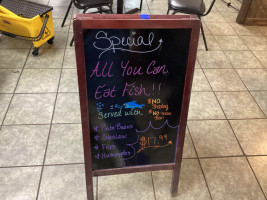 Special
All You Can
Eat Fish!!
Served with
NO
Sharing
NO
Beans
Coleslaw
Fries
Hushpuppies
$17.99